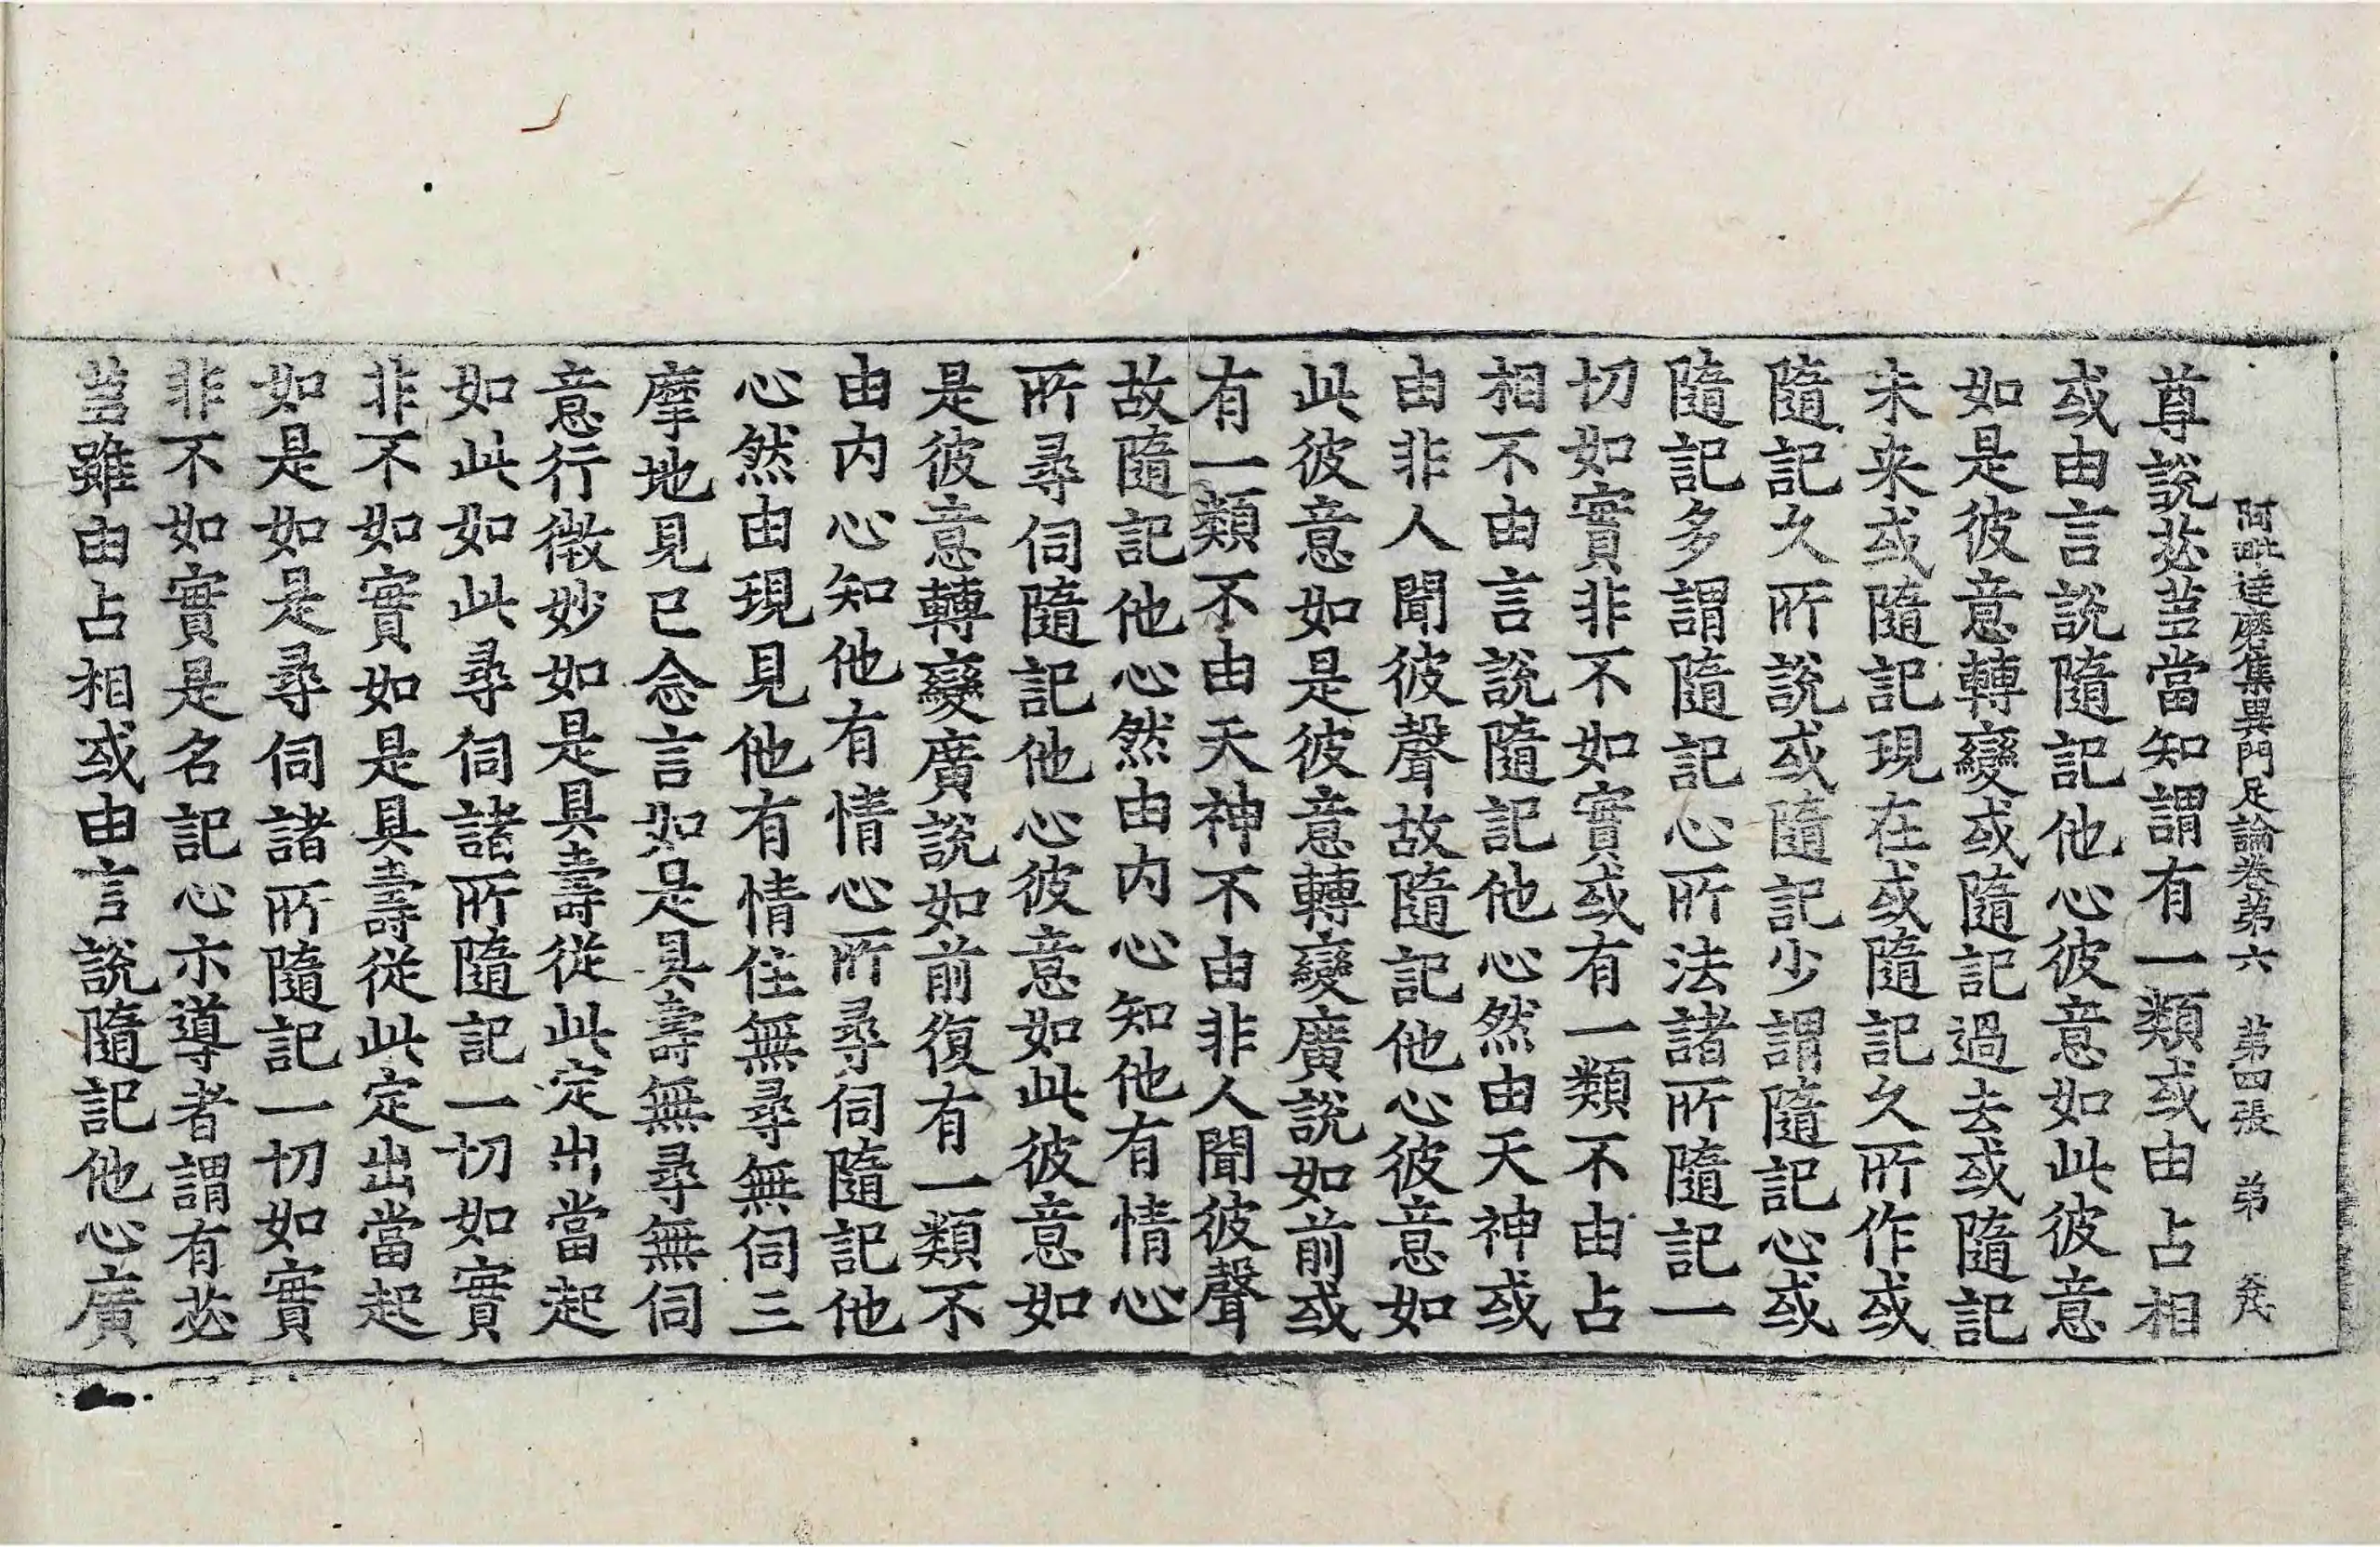 阿毗達磨集異門足論卷第六　第四張　弟
尊說苾蒭當知謂有一類或由占相
或由言說隨記他心彼意如此彼意
如是彼意轉變或隨記過去或隨記
未来或隨記現在或隨記久所作或
隨記久所說或隨記少謂隨記心或
隨記多謂隨記心所法諸所隨記一
切如實非不如實或有一類不由占
相不由言說隨記他心然由天神或
由非人聞彼聲故隨記他心彼意如
此彼意如是彼意轉變廣說如前或
有一類不由天神不由非人聞彼聲
故隨記他心然由內心知他有情心
所尋伺隨記他心彼意如此彼意如
是彼意轉變廣說如前復有一類不
由內心知他有情心所尋伺隨記他
心然由現見他有情住無尋無伺三
摩地見已念言如是具壽無尋無伺
意行微妙如是具壽從此定出當起
如此如此尋伺諸所隨記一切如實
非不如實如是具壽從此定出當起
如是如是尋伺諸所隨記一切如實
非不如實是名記心示導者謂有苾
蒭雖由占相或由言說隨記他心廣